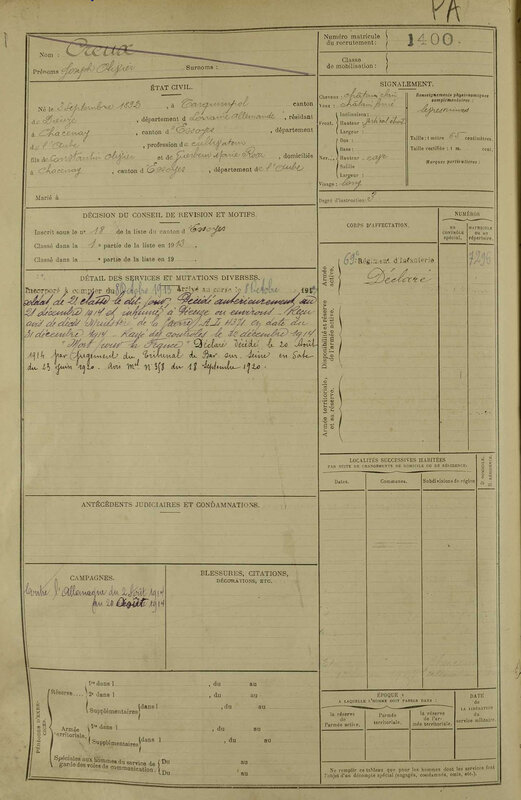 PA
Nom : Creux
Prénoms : Joseph Olivier Surnoms :
Numéro matricule du recrutement : 1400.
Classe de mobilisation :
ÉTAT CIVIL.
Né le 2 Septembre 1893, à Tarquimpol canton
de Dieuze, département de Lorraine Allemande, résidant
à Chacenay, canton d'Essoyes, département
de l'Aube, profession de cultivateur
fils de Constantin Olivier et de Marie Rose, domiciliés
à Chacenay, canton d'Essoyes, département de l'Aube
Marié à
SIGNALEMENT.
Cheveux : châtain
Yeux : châtain foncé
Front. Inclinaison :
Hauteur :
Largeur :
Nez. Dos :
Base :
Hauteur :
Saillie
Largeur :
Visage : long
Renseignements physionomiques complémentaires :
Taille : 1 mètre 65 centimètres.
Taille rectifiée : 1 m. cent.
Marques particulières :
Degré d'instruction : 3
DÉCISION DU CONSEIL DE REVISION ET MOTIFS.
Inscrit sous le n° 18 de la liste du canton d'Essoyes
Classé dans la 1e partie de la liste en 1913
Classé dans la partie de la liste en 19
DÉTAIL DES SERVICES ET MUTATIONS DIVERSES.
Incorporé à compter du 8 Octobre 1913 Arrivé au corps le 8 Octobre 1913
soldat de 2e classe le dit jour. Décédé antérieurement au
21 décembre 1914 et inhumé à Dieuze ou environs. Reçu
avis de décès Ministère de la Guerre A.L. 4321 en date du
31 décembre 1914 Rayé des contrôles le 30 décembre 1914
"Mort pour la France" Déclaré Décédé le 20 Août
1914 par jugement du Tribunal de Bar sur Seine en date
du 23 Juin 1920. Avis Mel N° 318 du 18 Septembre 1920.
CORPS D'AFFECTATION.
NUMÉROS
AU CONTRÔLE SPÉCIAL.
MATRICULE OU AU RÉPERTOIRE.
Armée active.
69e Régiment d'Infanterie
7296
Décédé
Disponibilité et réserve de l'armée active.
Armée territoriale et sa réserve.
LOCALITÉS SUCCESSIVES HABITÉES
PAR SUITE DE CHANGEMENTS DE DOMICILE OU DE RÉSIDENCE.
Dates.
Communes.
Subdivisions de région
D. DOMICILE.
R. RÉSIDENCE.
ANTÉCÉDENTS JUDICIAIRES ET CONDAMNATIONS.
CAMPAGNES.
Contre l'Allemagne du 2 Août 1914
au 20 Août 1914
BLESSURES, CITATIONS, DÉCORATIONS, ETC.
PÉRIODES D'EXERCICES
Réserve
1re dans l , du au
2e dans l , du au
Supplémentaires dans l , du au
Armée territoriale.
1re dans l , du au
Supplémentaires dans l , du au
Spéciales aux hommes du service de garde des voies de communication :
Du au
Du au
ÉPOQUE
À LAQUELLE L'HOMME DOIT PASSER DANS :
la réserve de l'armée active.
l'armée territoriale.
la réserve de l'armée territoriale.
DATE DE LA LIBÉRATION du service militaire.
Ne remplir ce tableau que pour les hommes dont les services font l'objet d'un décompte spécial (engagés, condamnés, omis, etc.)